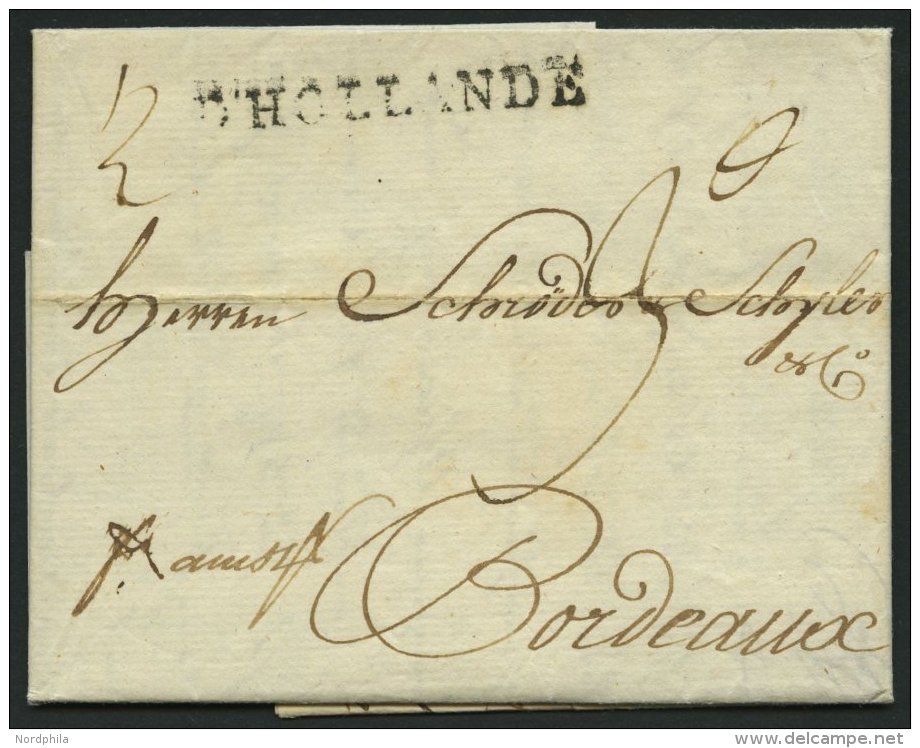 D'HOLLANDE
Herren Schröder & Schyler
& Co
Bordeaux
Nordphila
delcampe.net